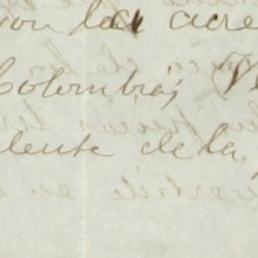 son las acre
Colombia;
dente de la